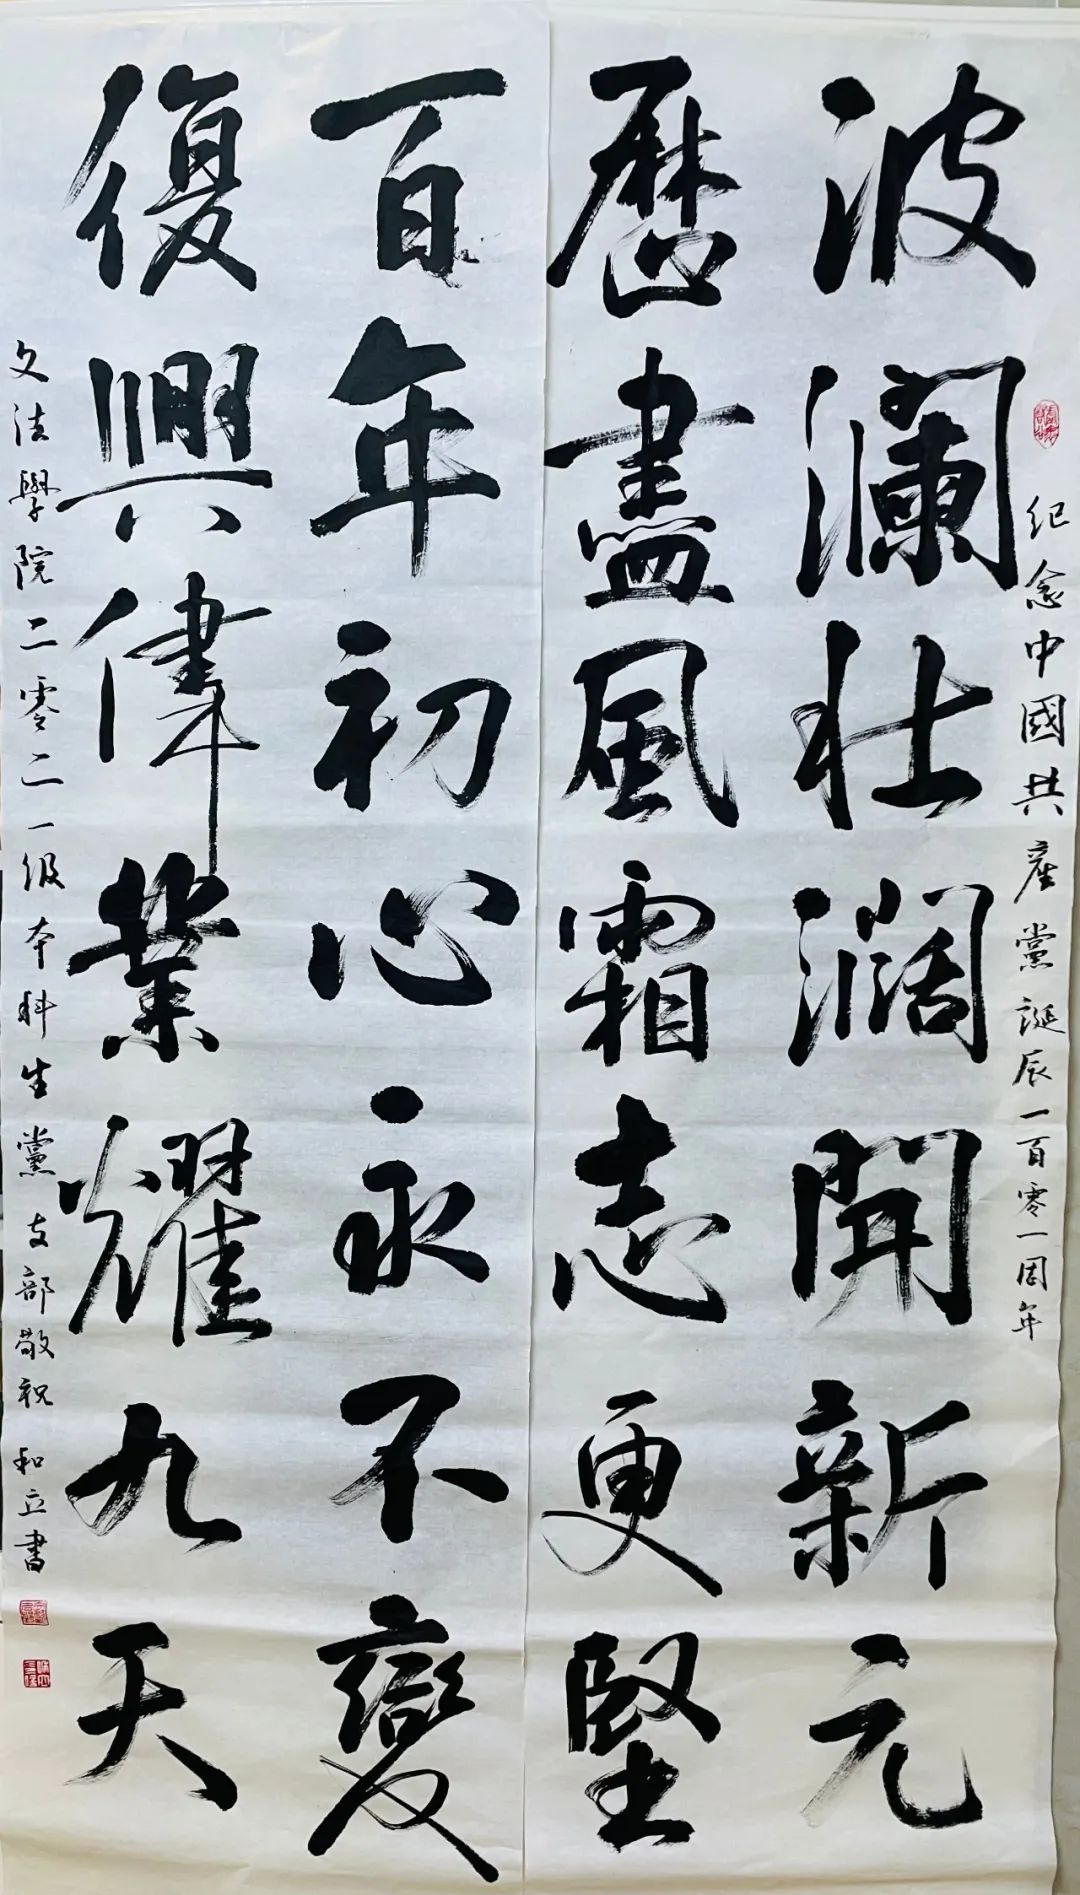 紀念中國共産黨誕辰一百零一周年
波瀾壯濶開新元
歷盡風霜志更堅
百年初心永不變
復興偉業耀九天
文法學院二零二一級本科生黨支部敬祝 和立書